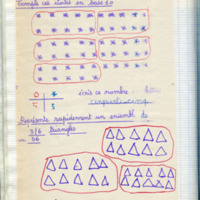 Compte ces étoiles en base 10
d u
5 5
écris ce nombre
cinquante-cinq
Représente rapidement un ensemble de
36 triangles